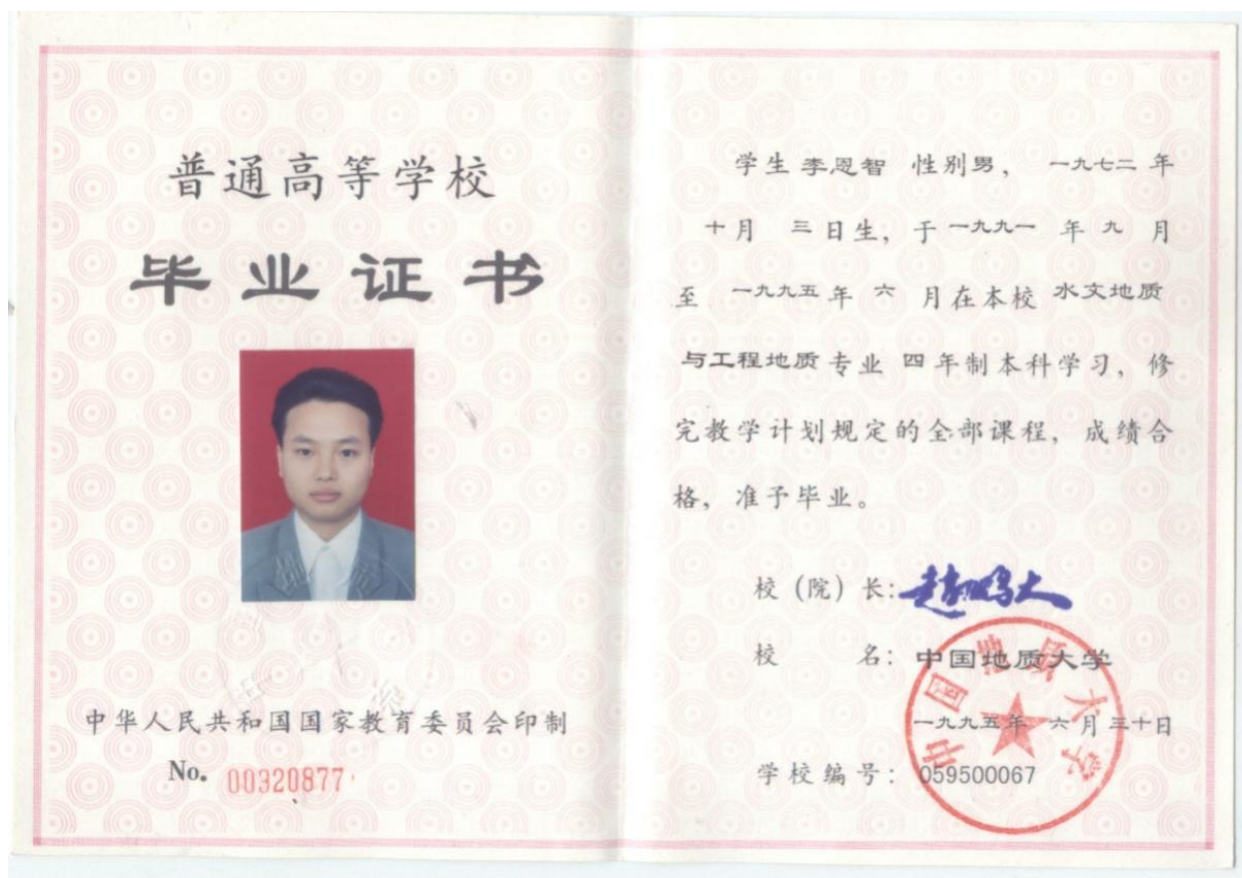 普通高等学校
毕业证书
中华人民共和国国家教育委员会印制
No. 00320877
学生 李恩智 性别男， 一九七二 年
十月 三日生，于一九九一 年 九 月
至 一九九五 年 六 月在本校 水文地质
与工程地质 专业 四 年制本科学习，修
完教学计划规定的全部课程，成绩合
格，准予毕业。
校（院）长：赵鹏大
校 名：中国地质大学
一九九五年 六月三十日
学校编号：059500067
中国地质大学